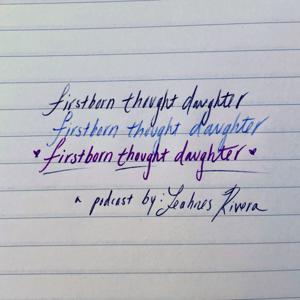 firstborn thought daughter
firstborn thought daughter
firstborn thought daughter
a podcast by: Leahnes Rivera